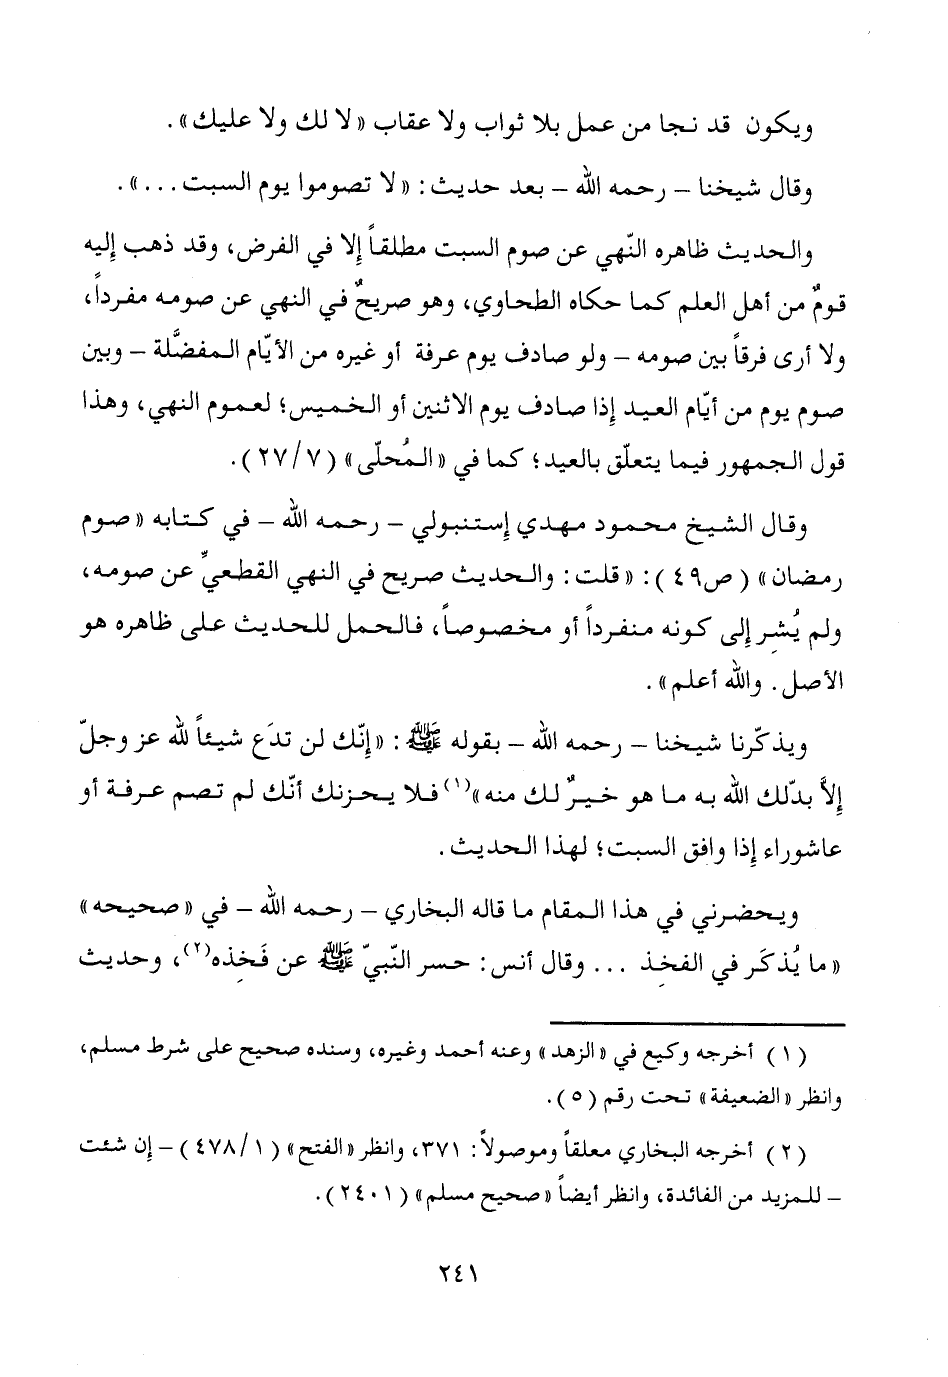 ويكون قد نجا من عمل بلا ثواب ولا عقاب «لا لك ولا عليك».
وقال شيخنا - رحمه الله - بعد حديث: «لا تصوموا يوم السبت...».
والحديث ظاهره النّهي عن صوم السبت مطلقاً إلا في الفرض، وقد ذهب إليه
قومٌ من أهل العلم كما حكاه الطحاوي، وهو صريحٌ في النهي عن صومه مفرداً،
ولا أرى فرقاً بين صومه - ولو صادف يوم عرفة أو غيره من الأيّام المفضَّلة - وبين
صوم يوم من أيّام العيد إذا صادف يوم الاثنين أو الخميس؛ لعموم النهي، وهذا
قول الجمهور فيما يتعلّق بالعيد؛ كما في «المُحلّى» (٢٧/٧).
وقال الشيخ محمود مهدي إستنبولي - رحمه الله - في كتابه «صوم
رمضان» (ص٤٩): «قلت: والحديث صريح في النهي القطعيِّ عن صومه،
ولم يُشِر إلى كونه منفرداً أو مخصوصاً، فالحمل للحديث على ظاهره هو
الأصل. والله أعلم».
ويذكّرنا شيخنا - رحمه الله - بقوله ﷺ: «إنّك لن تدَع شيئاً لله عز وجلّ
إلاَّ بدّلك الله به ما هو خيرٌ لك منه»(١) فلا يحزنك أنّك لم تصم عرفة أو
عاشوراء إذا وافق السبت؛ لهذا الحديث.
ويحضرني في هذا المقام ما قاله البخاري - رحمه الله - في «صحيحه»
«ما يُذكَر في الفخِذ ... وقال أنس: حسر النّبيّ ﷺ عن فَخِذه(٢)، وحديث
(١) أخرجه وكيع في «الزهد» وعنه أحمد وغيره، وسنده صحيح على شرط مسلم،
وانظر «الضعيفة» تحت رقم (٥).
(٢) أخرجه البخاري معلقاً وموصولاً: ٣٧١، وانظر «الفتح» (٤٧٨/١) - إن شئت
- للمزيد من الفائدة، وانظر أيضاً «صحيح مسلم» (٢٤٠١).
٢٤١